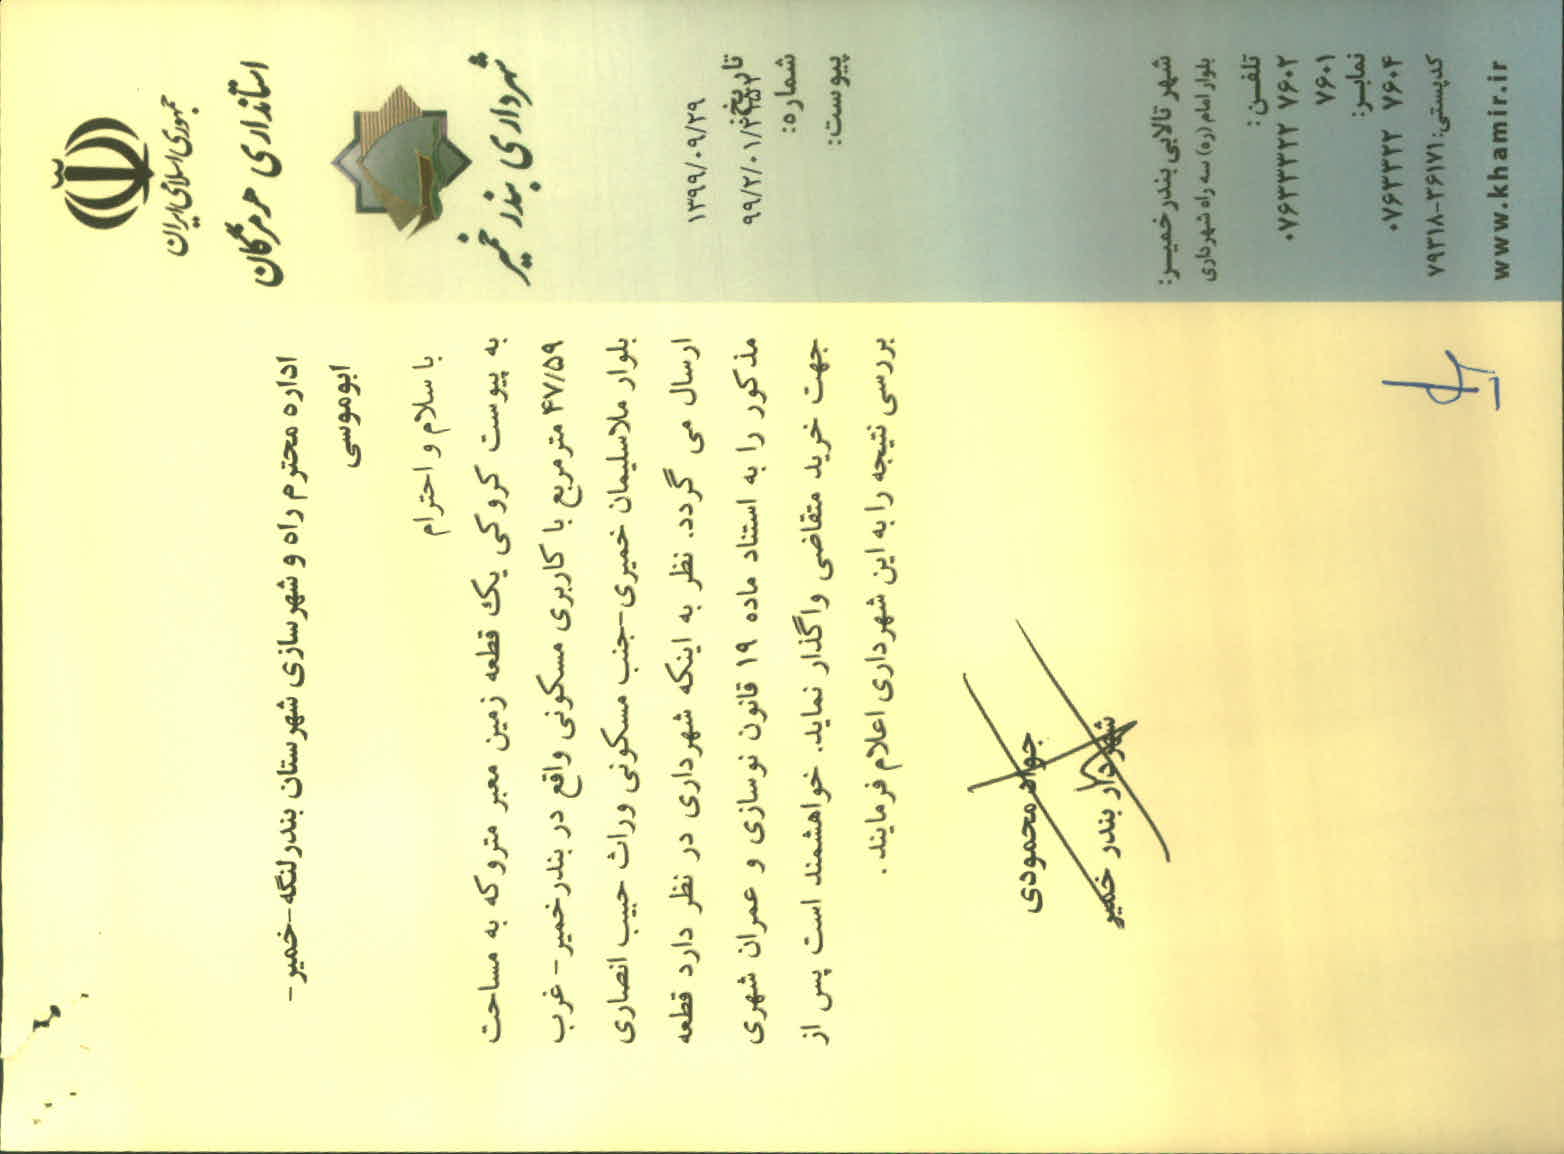 جمهوری اسلامی ایران
استانداری هرمزگان
شهرداری بندر خمیر
۱۳۹۹/۰۹/۲۹
تاریخ:
شماره:
پیوست:
اداره محترم راه و شهرسازی شهرستان بندرلنگه-خمیر-
ابوموسی
با سلام و احترام
به پیوست کروکی یک قطعه زمین معبر متروکه به مساحت
۴۷/۵۹ مترمربع با کاربری مسکونی واقع در بندرخمیر- غرب
بلوار ملاسلیمان خمیری-جنب مسکونی وراث حبیب انصاری
ارسال می گردد. نظر به اینکه شهرداری در نظر دارد قطعه
مذکور را به استناد ماده ۱۹ قانون نوسازی و عمران شهری
جهت خرید متقاضی واگذار نماید. خواهشمند است پس از
بررسی نتیجه را به این شهرداری اعلام فرمایند.
جواد محمودی
شهردار بندر خمیر
شهر تالابی بندر خمیـر:
بلوار امام (ره) سه راه شهرداری
تلفـن:
۰۷۶۳۳۳۲۲ ۷۶۰۲
۷۶۰۱
نمابـر:
۰۷۶۳۳۳۲۲ ۷۶۰۴
کدپستی: ۳۶۱۷۱-۷۹۳۱۸
www.khamir.ir